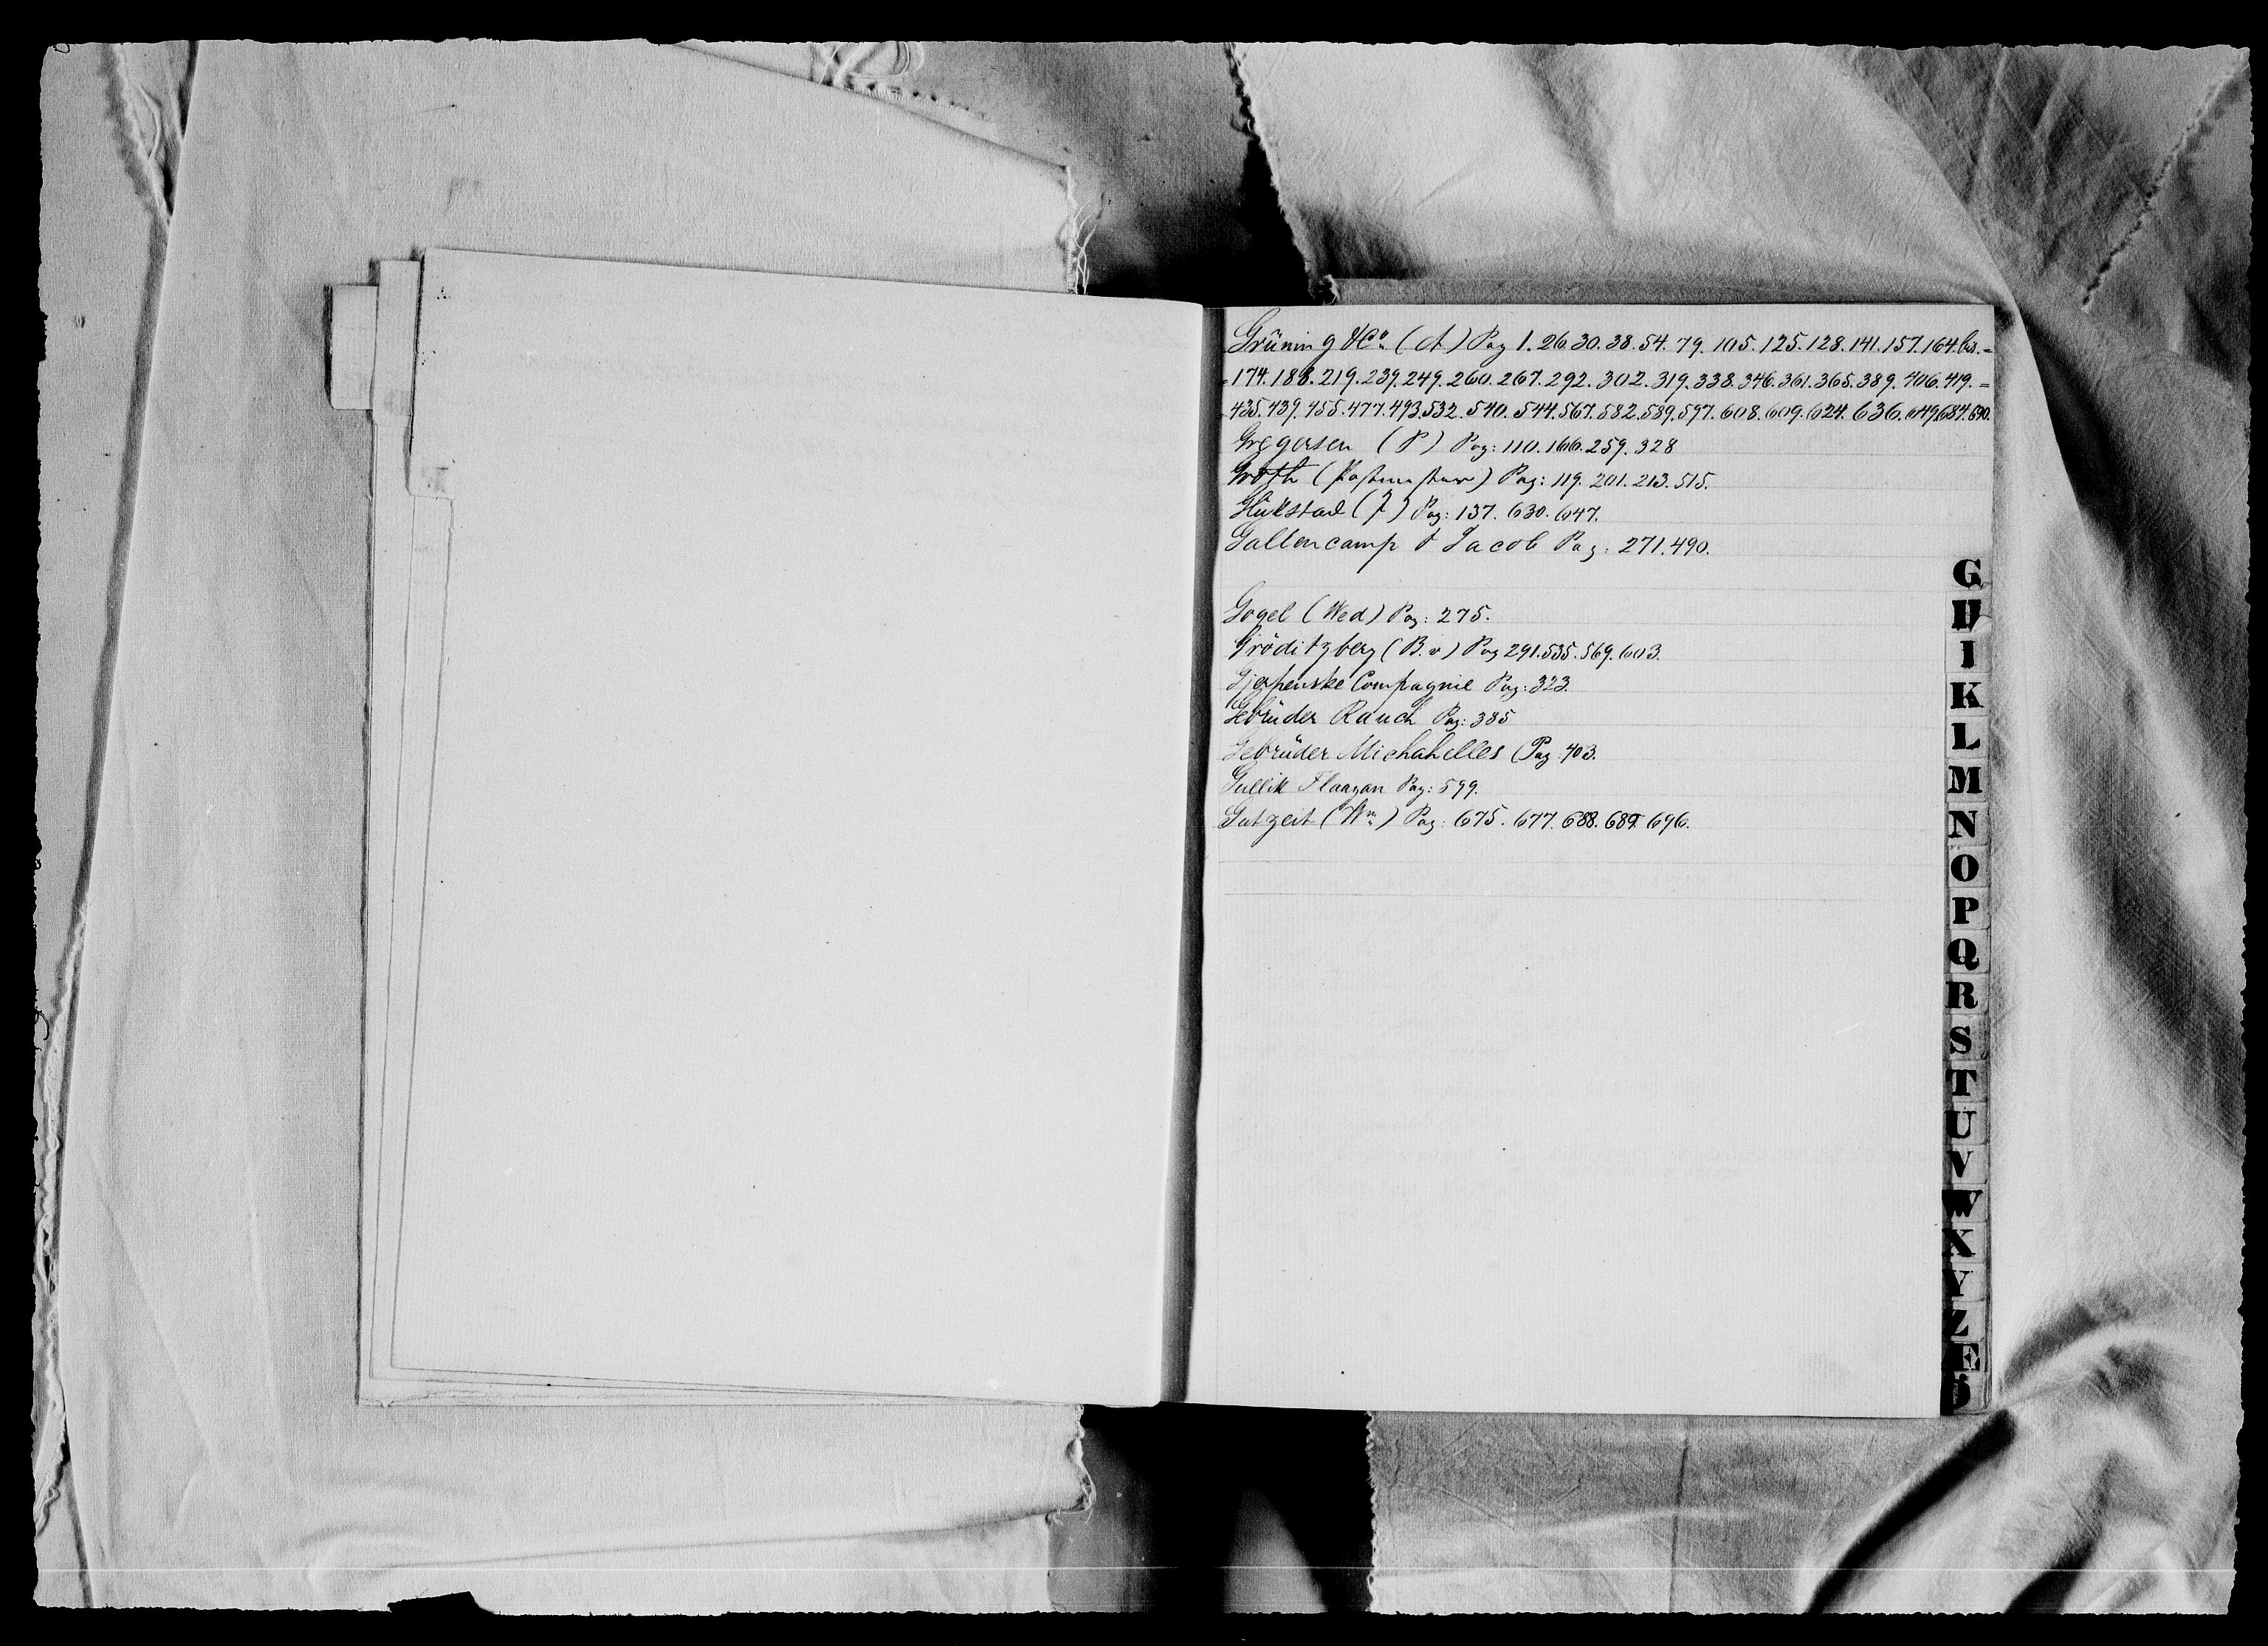 Grüning & Co (A) Pag 1. 26. 30. 38. 54. 79. 105. 125. 128. 141. 157. 164. -
- 174. 188. 219. 239. 249. 260. 267. 292. 302. 319. 338. 346. 361. 365. 389. 406. 419. -
435. 439. 455. 477. 493. 532. 540. 544. 567. 582. 589. 597. 608. 609. 624. 636. 649. 684. 690.
Gregersen (P) Pag: 110. 166. 259. 328
Groth (Postmester) Pag: 119. 201. 213. 515.
Glükstad (J) Pag: 137. 630. 647.
Gallencamp & Jacob Pag: 271. 490.
Gogel (Wed) Pag: 275.
Gröditzberg (B. v) Pag 291. 535. 569. 603.
Gjerpenske Compagnie Pag: 323.
Gebrüder Rauch Pag: 385
Gebrüder Michahelles Pag: 403.
Gullik Flaagan Pag: 599.
Gutzeit (Wm) Pag: 675. 677. 688. 689. 696.
G
H
I
K
L
M
N
O
P
Q
R
S
T
U
V
W
X
Y
Z